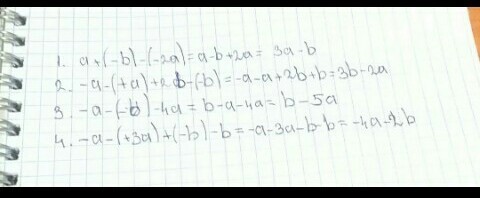 1. a+(-b)-(-2a)=a-b+2a= 3a-b
2. -a-(+a)+2b-(-b)=-a-a+2b+b=3b-2a
3. -a-(-b)-4a=b-a-4a=b-5a
4. -a-(+3a)+(-b)-b=-a-3a-b-b=-4a-2b